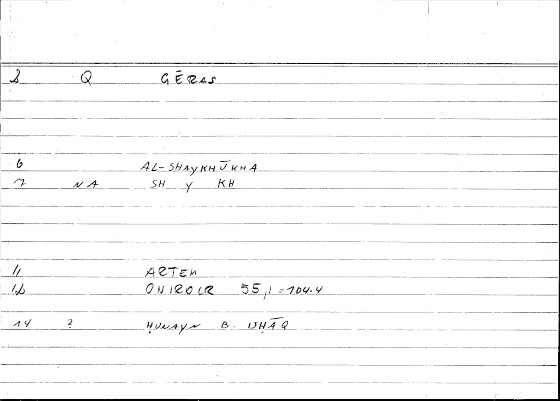 Q GĒRAS
6 AL-SHAYKHŪKHA
7 NA SH Y KH
11 ARTEM
ONIROCR 55,1=104.4
14 ? ḤUNAYN B. ISḤĀQ